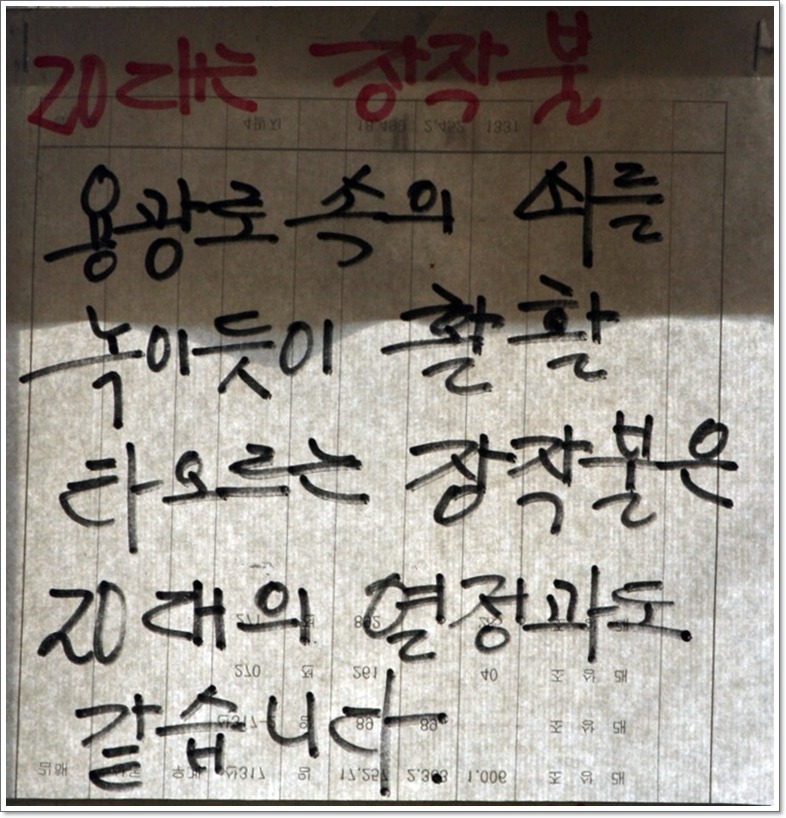 20대는 장작불
용광로 속의 쇠를
녹이듯이 활활
타오르는 장작불은
20대의 열정과도
같습니다.